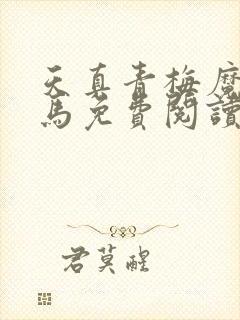 天真青梅魔
馬免費閱讀
君莫醒